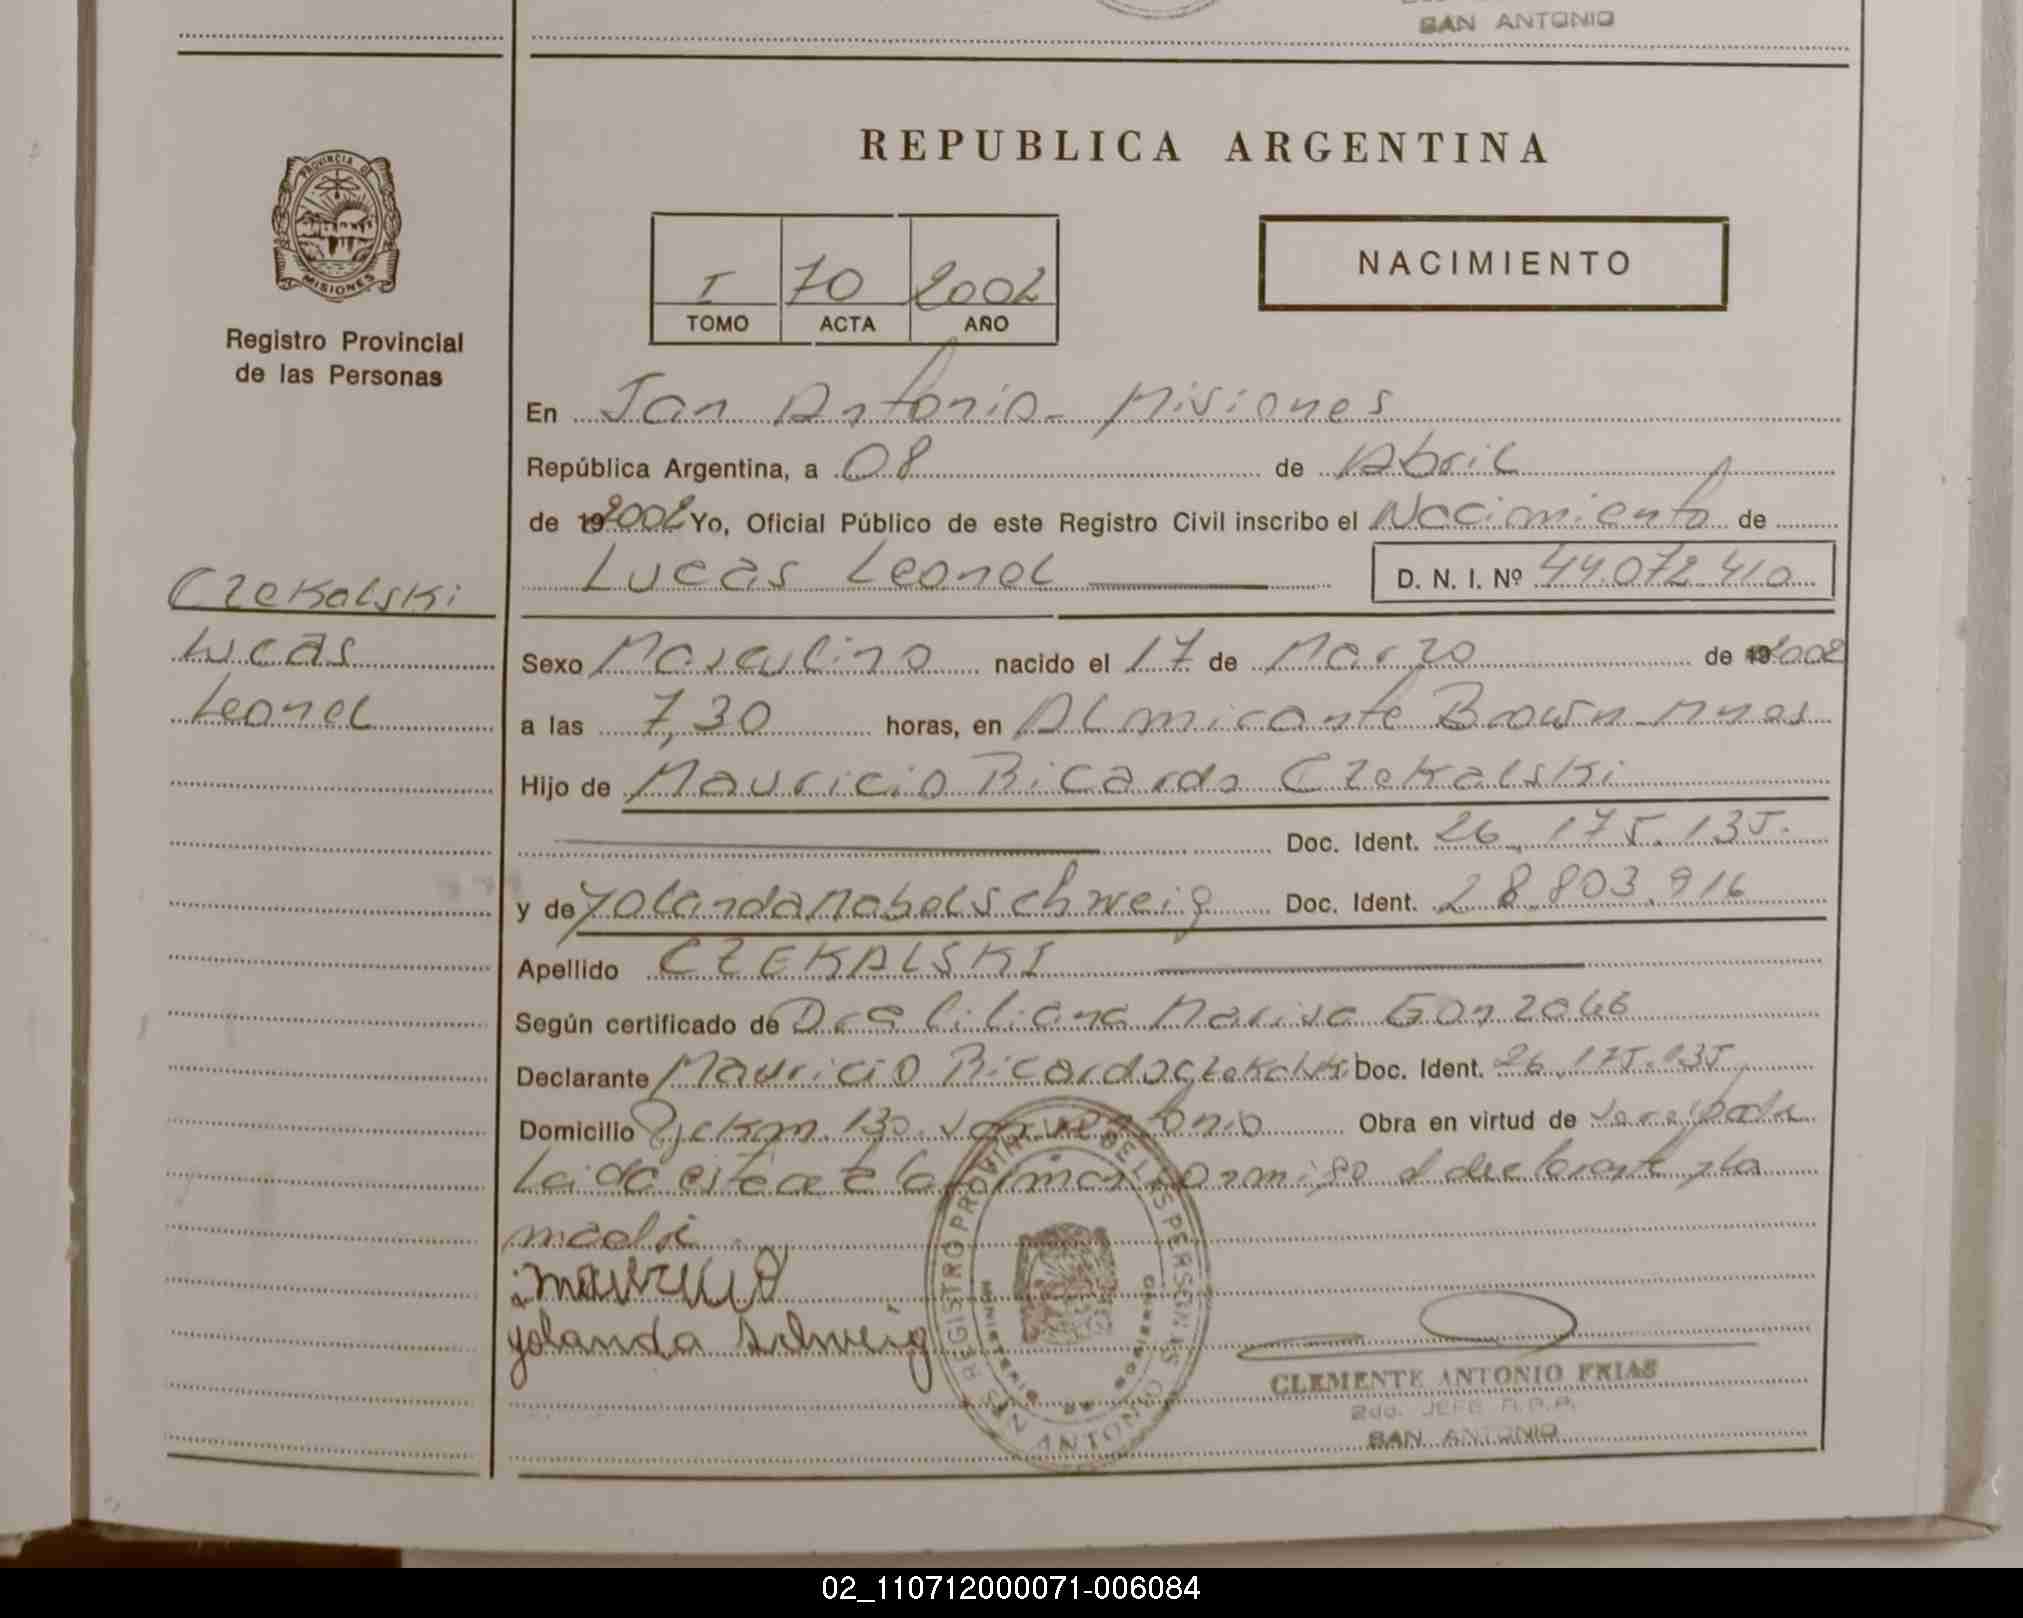 SAN ANTONIO
REPUBLICA ARGENTINA
PROVINCIA DE
MISIONES
Registro Provincial
de las Personas
I 70 2002
TOMO ACTA AÑO
NACIMIENTO
En San Antonio - Misiones
República Argentina, a 08 de Abril
de 192002 Yo, Oficial Público de este Registro Civil inscribo el Nacimiento de
Lucas Leonel D. N. I. Nº 44.072.410
Czekalski
Lucas
Leonel
Sexo Masculino nacido el 17 de Marzo de 192002
a las 7,30 horas, en Almirante Brown - Mnes
Hijo de Mauricio Ricardo Czekalski
Doc. Ident. 26.175.135.
y de Yolanda Mabel Schweig Doc. Ident. 28.803.916
Apellido CZEKALSKI
Según certificado de Dra Liliana Marisa Gonzalez
Declarante Mauricio Ricardo Czekalski Doc. Ident. 26.175.135
Domicilio km. 130. San Antonio Obra en virtud de
Leida este acta la firman conmigo el declarante y la
madre.
Mauricio
yolanda schweig
REGISTRO PROVINCIAL DE LAS PERSONAS
CLEMENTE ANTONIO FRIAS
2do. JEFE R.P.P.
SAN ANTONIO
02_110712000071-006084